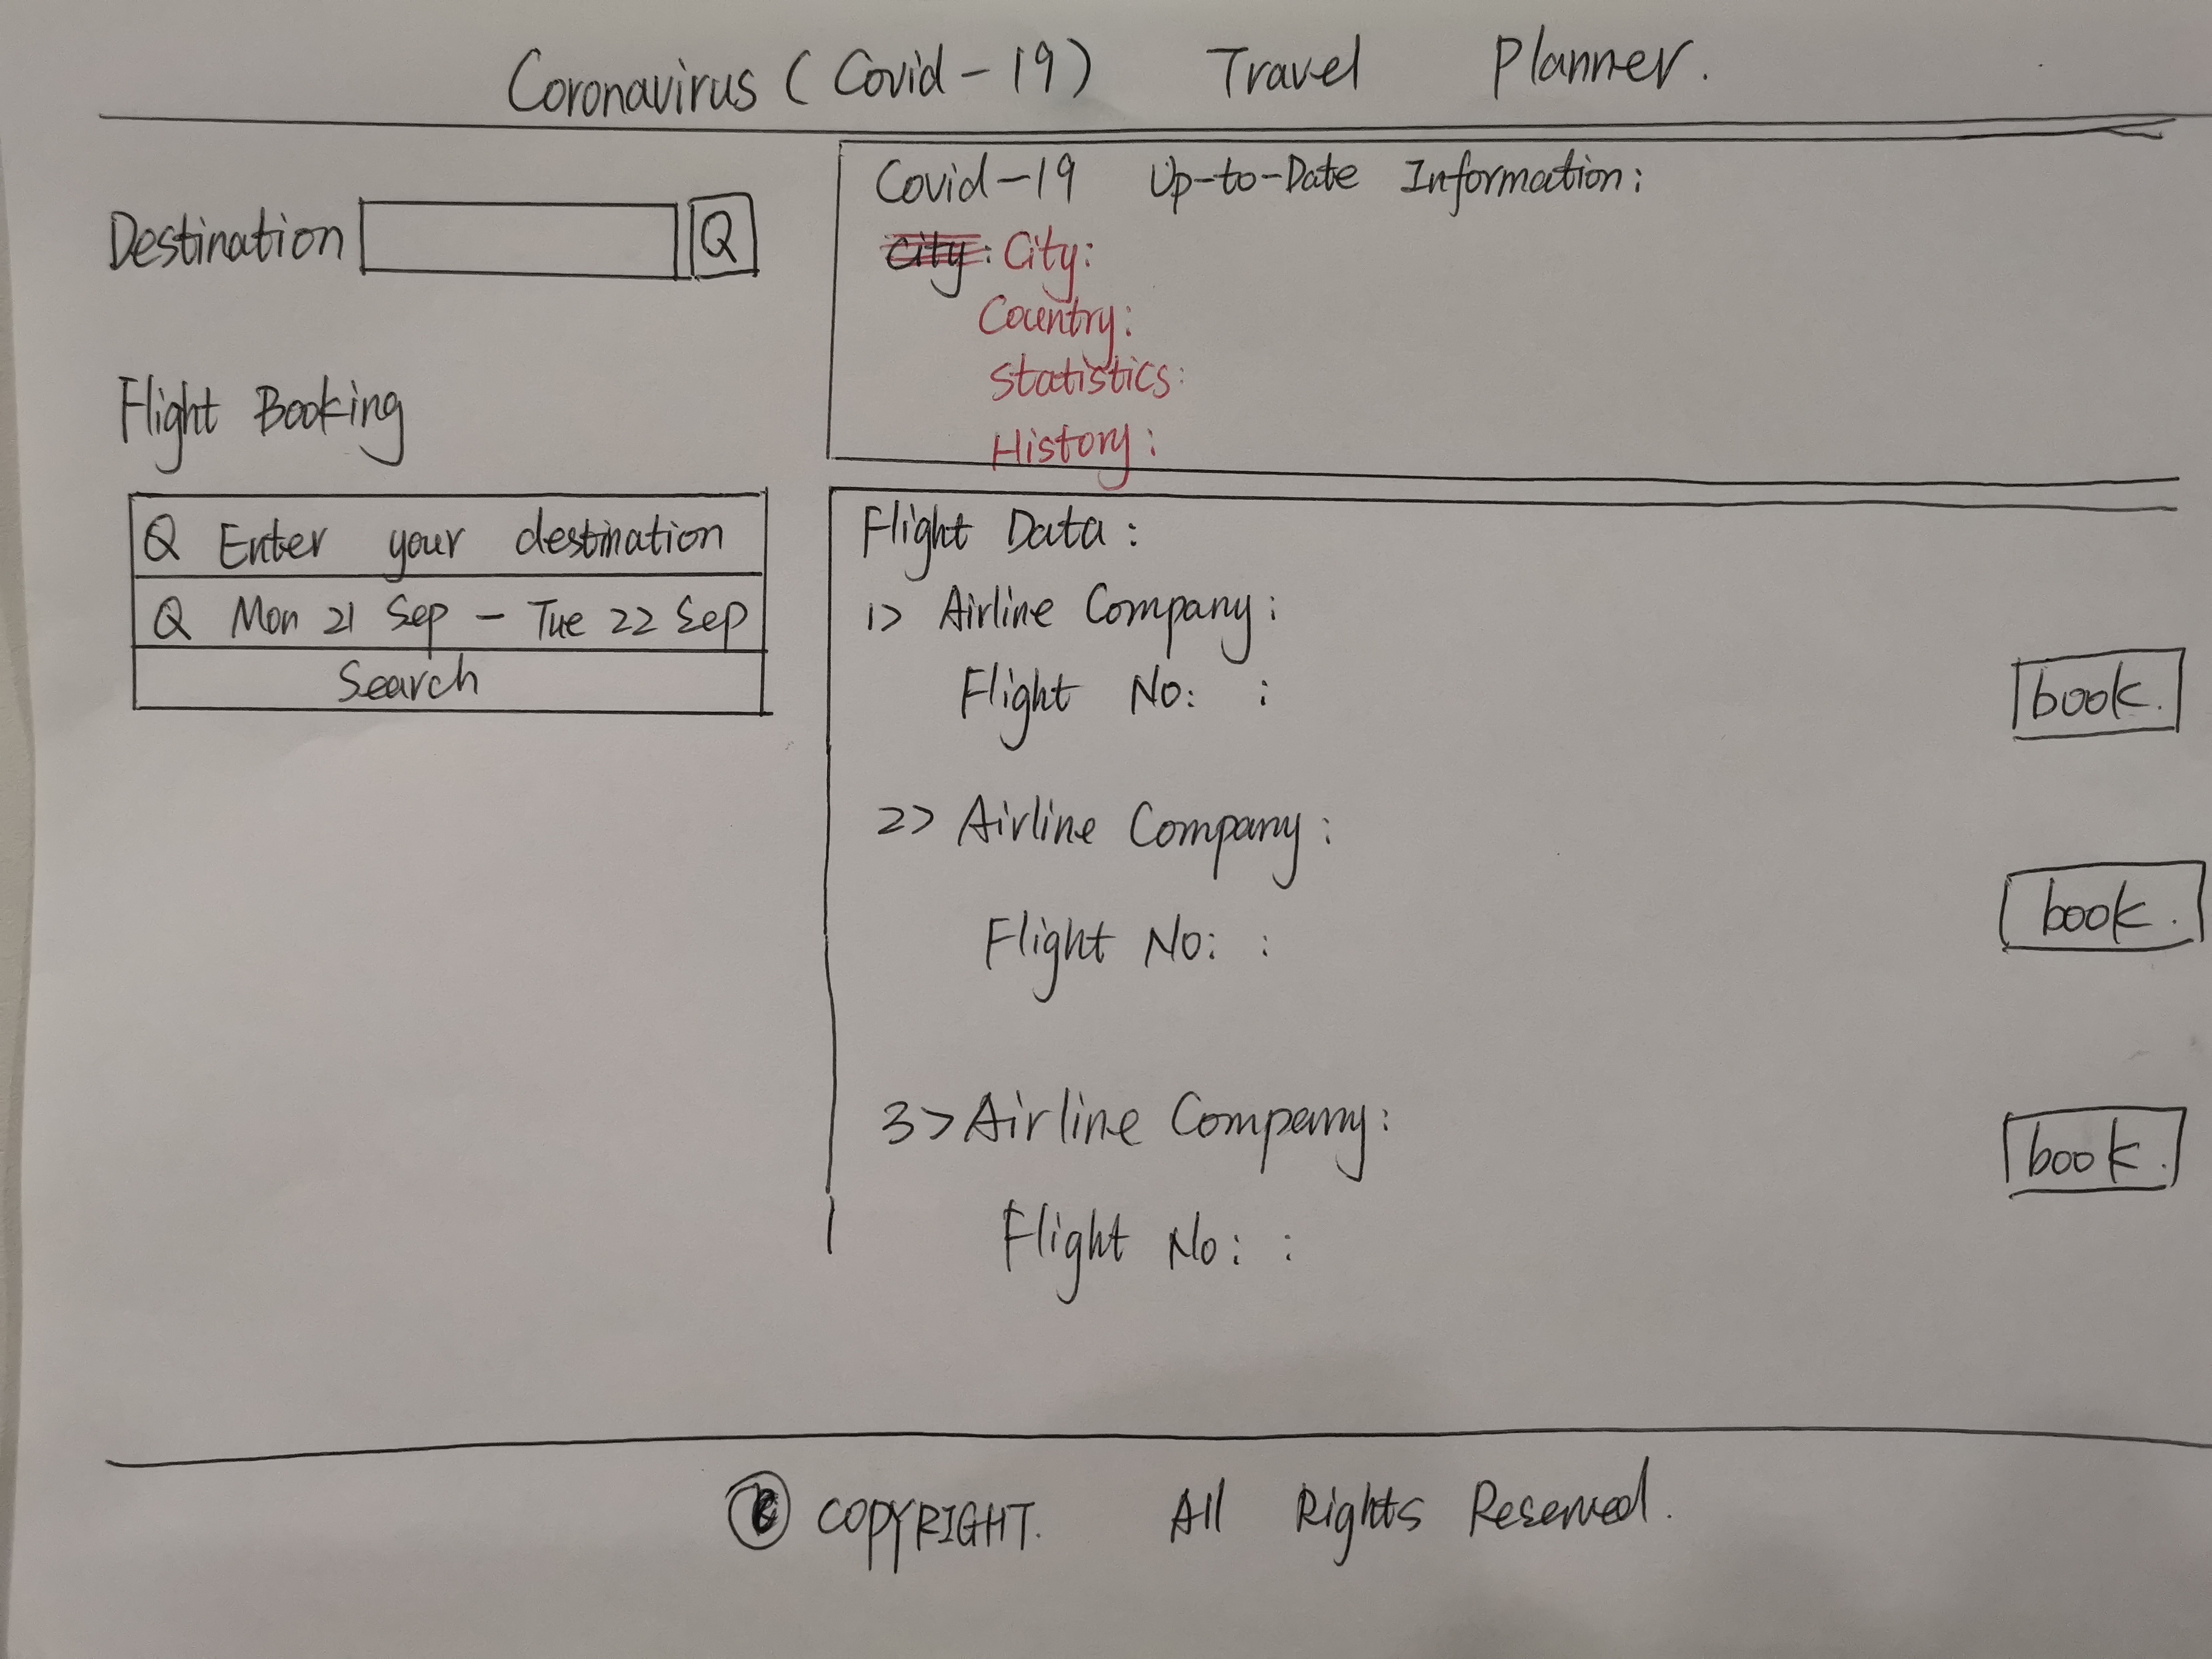 Coronavirus (Covid-19) Travel Planner.
Destination
Q
Flight Booking
Q Enter your destination
Q Mon 21 Sep - Tue 22 Sep
Search
Covid-19 Up-to-Date Information:
City: City:
Country:
Statistics:
History:
Flight Data:
1> Airline Company:
Flight No: :
book.
2> Airline Company:
Flight No: :
book.
3> Airline Company:
Flight No: :
book.
© COPYRIGHT. All Rights Reserved.